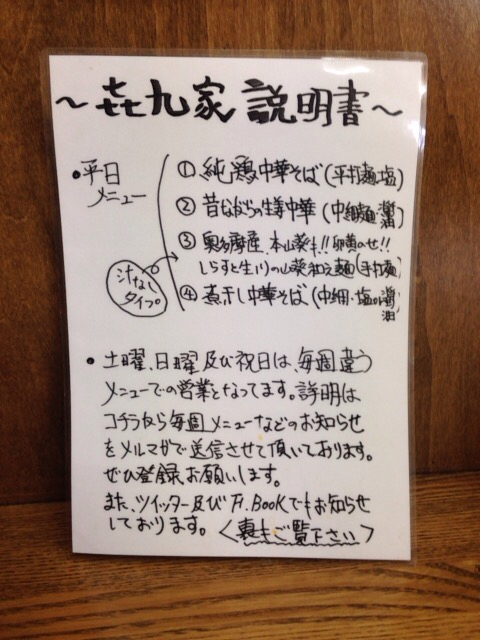 ～㐂九家 説明書～
・平日メニュー
① 純鶏中華そば(平打麺・塩)
② 昔ながらの生姜中華(中細麺・醤油)
③ 奥多摩産、本山葵も!!卵黄のせ!!
しらすと生川のの山葵和え麺(手打麺)
汁なしタイプ。
④ 煮干し中華そば(中細・塩or醤油)
・土曜、日曜及び祝日は、毎週違う
メニューでの営業となってます。詳明は
コチラから毎週メニューなどのお知らせ
をメルマガで送信させて頂いております。
ぜひ登録お願いします。
また、ツイッター及びF.Bookでもお知らせ
しております。
＜裏もご覧下さい＞